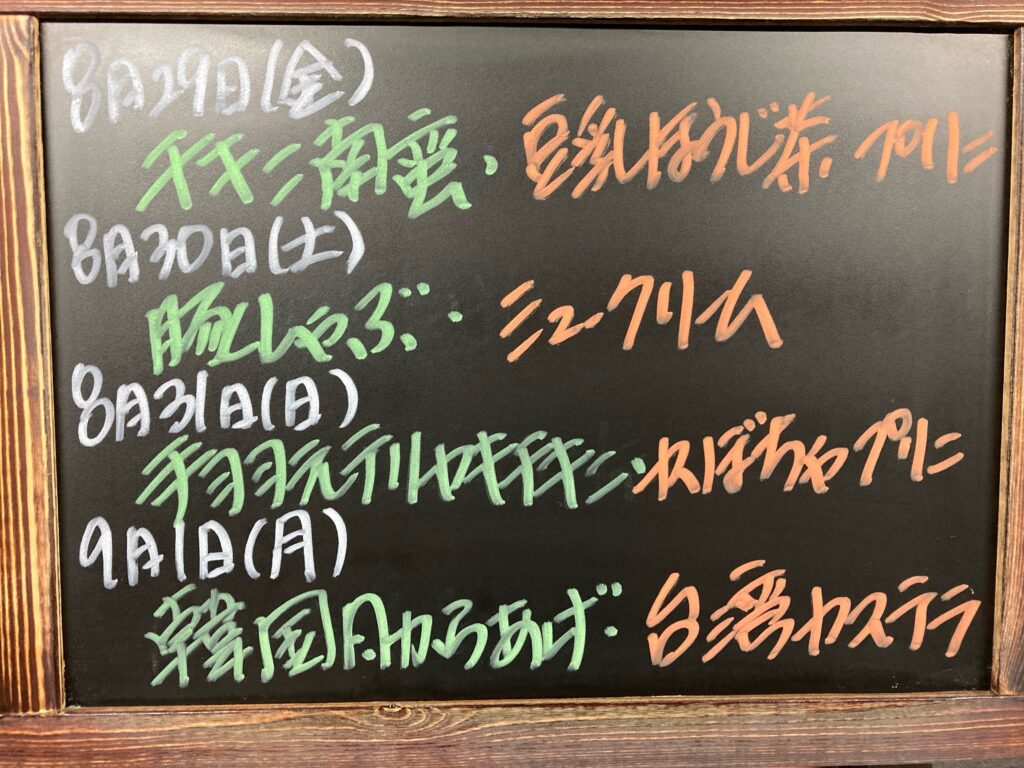 8月29日(金)
チキン南蛮、豆乳ほうじ茶プリン
8月30日(土)
豚しゃぶ・シュークリーム
8月31日(日)
テリヤキチキン・かぼちゃプリン
9月1日(月)
韓国風からあげ・台湾カステラ